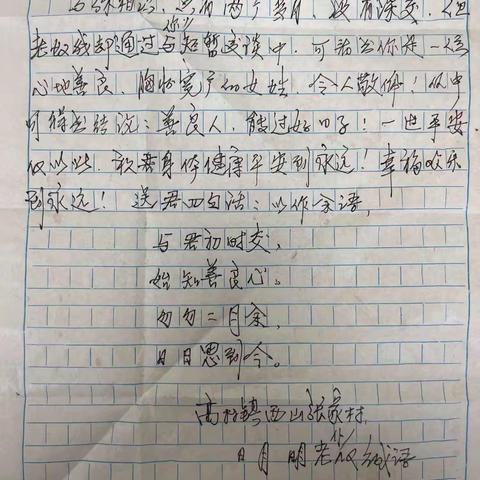 与你相识,总有两个多月,没有深交,但
老奴线却通过与你短暂交谈中,可看出你是一位
心地善良、胸怀宽广的女姓,令人敬佩!从中
可得出结论:善良人,能过好日子!一世平安
仅以此,祝君身体健康平安到永远!幸福欢乐
到永远!送君四句话:以作余语,
与君初时交,
始知善良心。
匆匆二月余,
日日思到今。
高村镇西山张家村,
日月明老仆